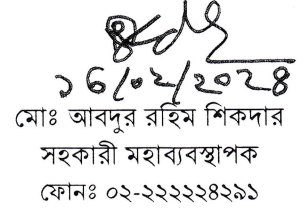 ১৮/০২/২০২৪
মোঃ আবদুর রহিম শিকদার
সহকারী মহাব্যবস্থাপক
ফোনঃ ০২-২২২২২৪২৯১